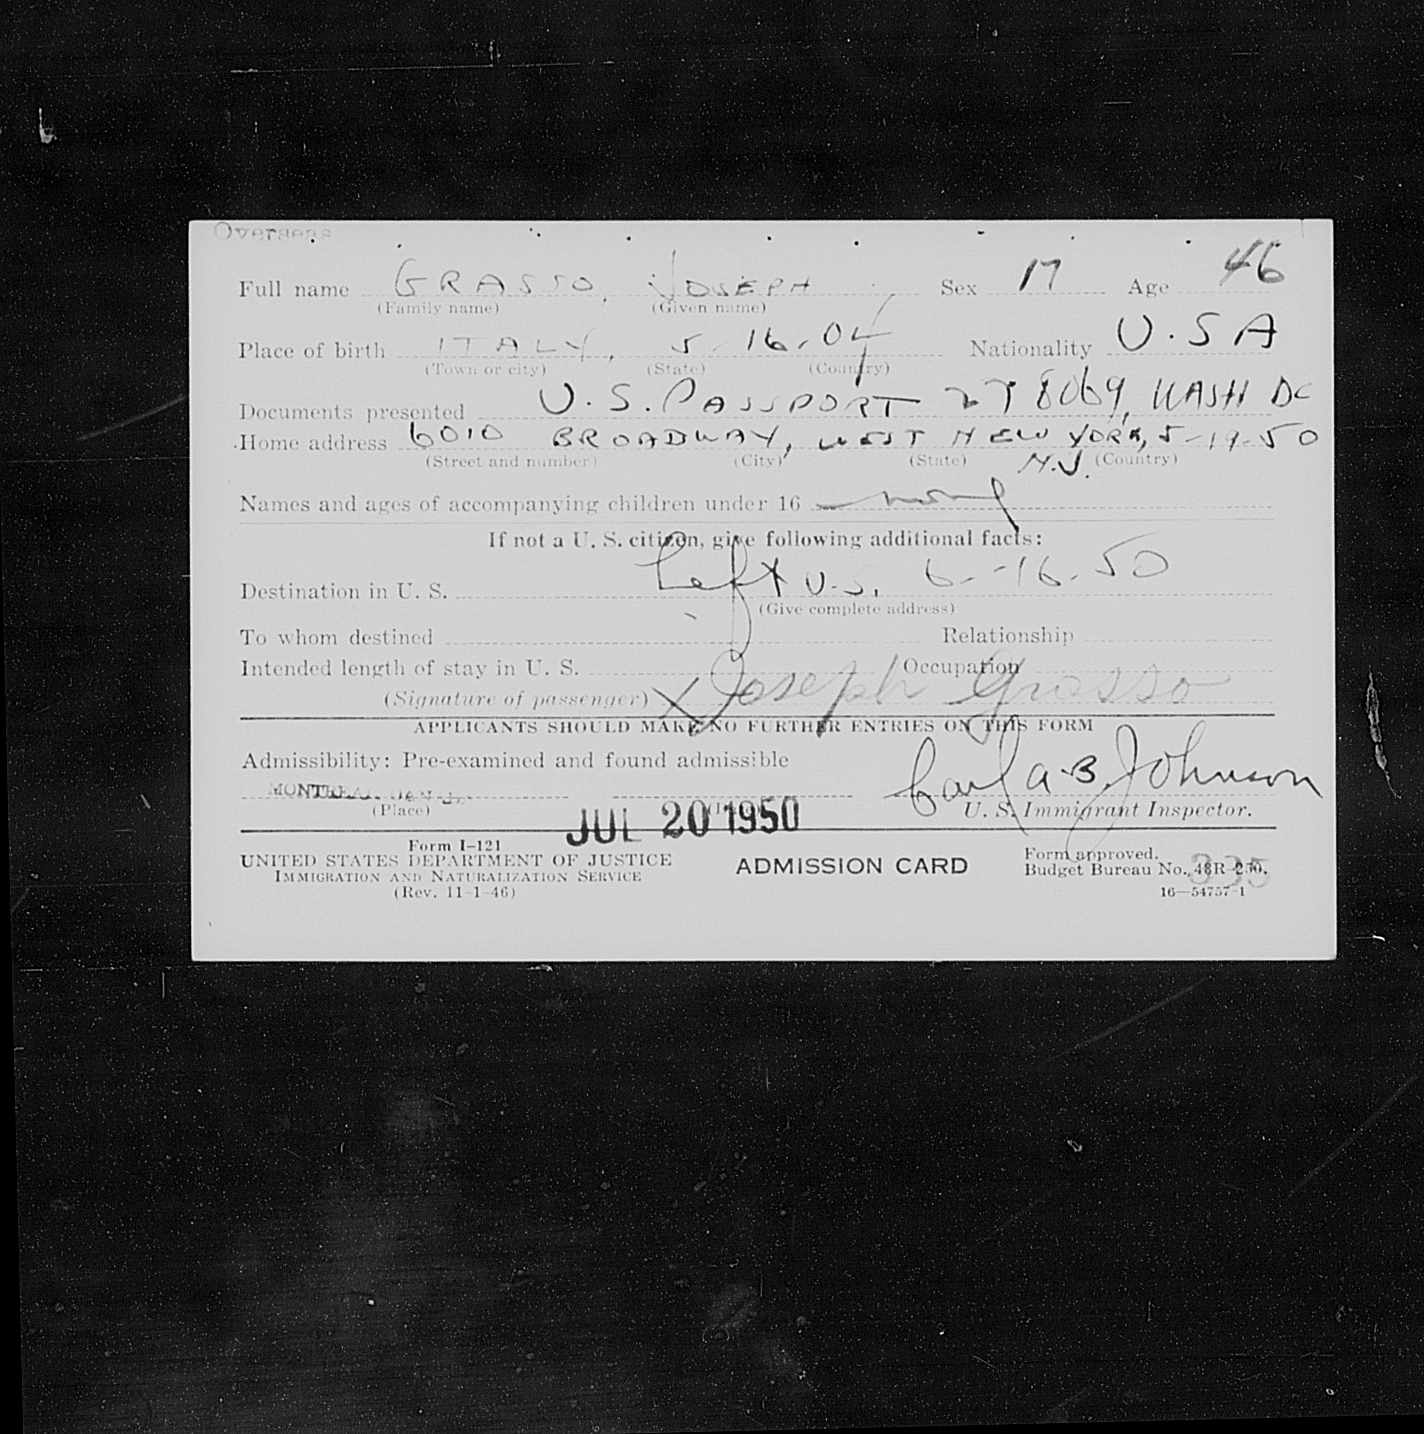 Overseas
Full name GRASSO, JOSEPH Sex M Age 46
(Family name) (Given name)
Place of birth ITALY, 5-16-04 Nationality U.S.A
(Town or city) (State) (Country)
Documents presented U.S. PASSPORT 278069, WASH DC
Home address 6010 BROADWAY, WEST NEW YORK, 5-19-50
(Street and number) (City) (State) N.J. (Country)
Names and ages of accompanying children under 16 none
If not a U. S. citizen, give following additional facts:
Destination in U. S. Left U.S. 6-16-50
(Give complete address)
To whom destined Relationship
Intended length of stay in U. S. Occupation
(Signature of passenger) X Joseph Grasso
APPLICANTS SHOULD MAKE NO FURTHER ENTRIES ON THIS FORM
Admissibility: Pre-examined and found admissible
MONTREAL Carl A. B. Johnson
(Place) JUL 20 1950 U. S. Immigrant Inspector.
Form I-121
UNITED STATES DEPARTMENT OF JUSTICE
IMMIGRATION AND NATURALIZATION SERVICE
(Rev. 11-1-46)
ADMISSION CARD
Form approved.
Budget Bureau No. 43R-250.
335
16—54757-1